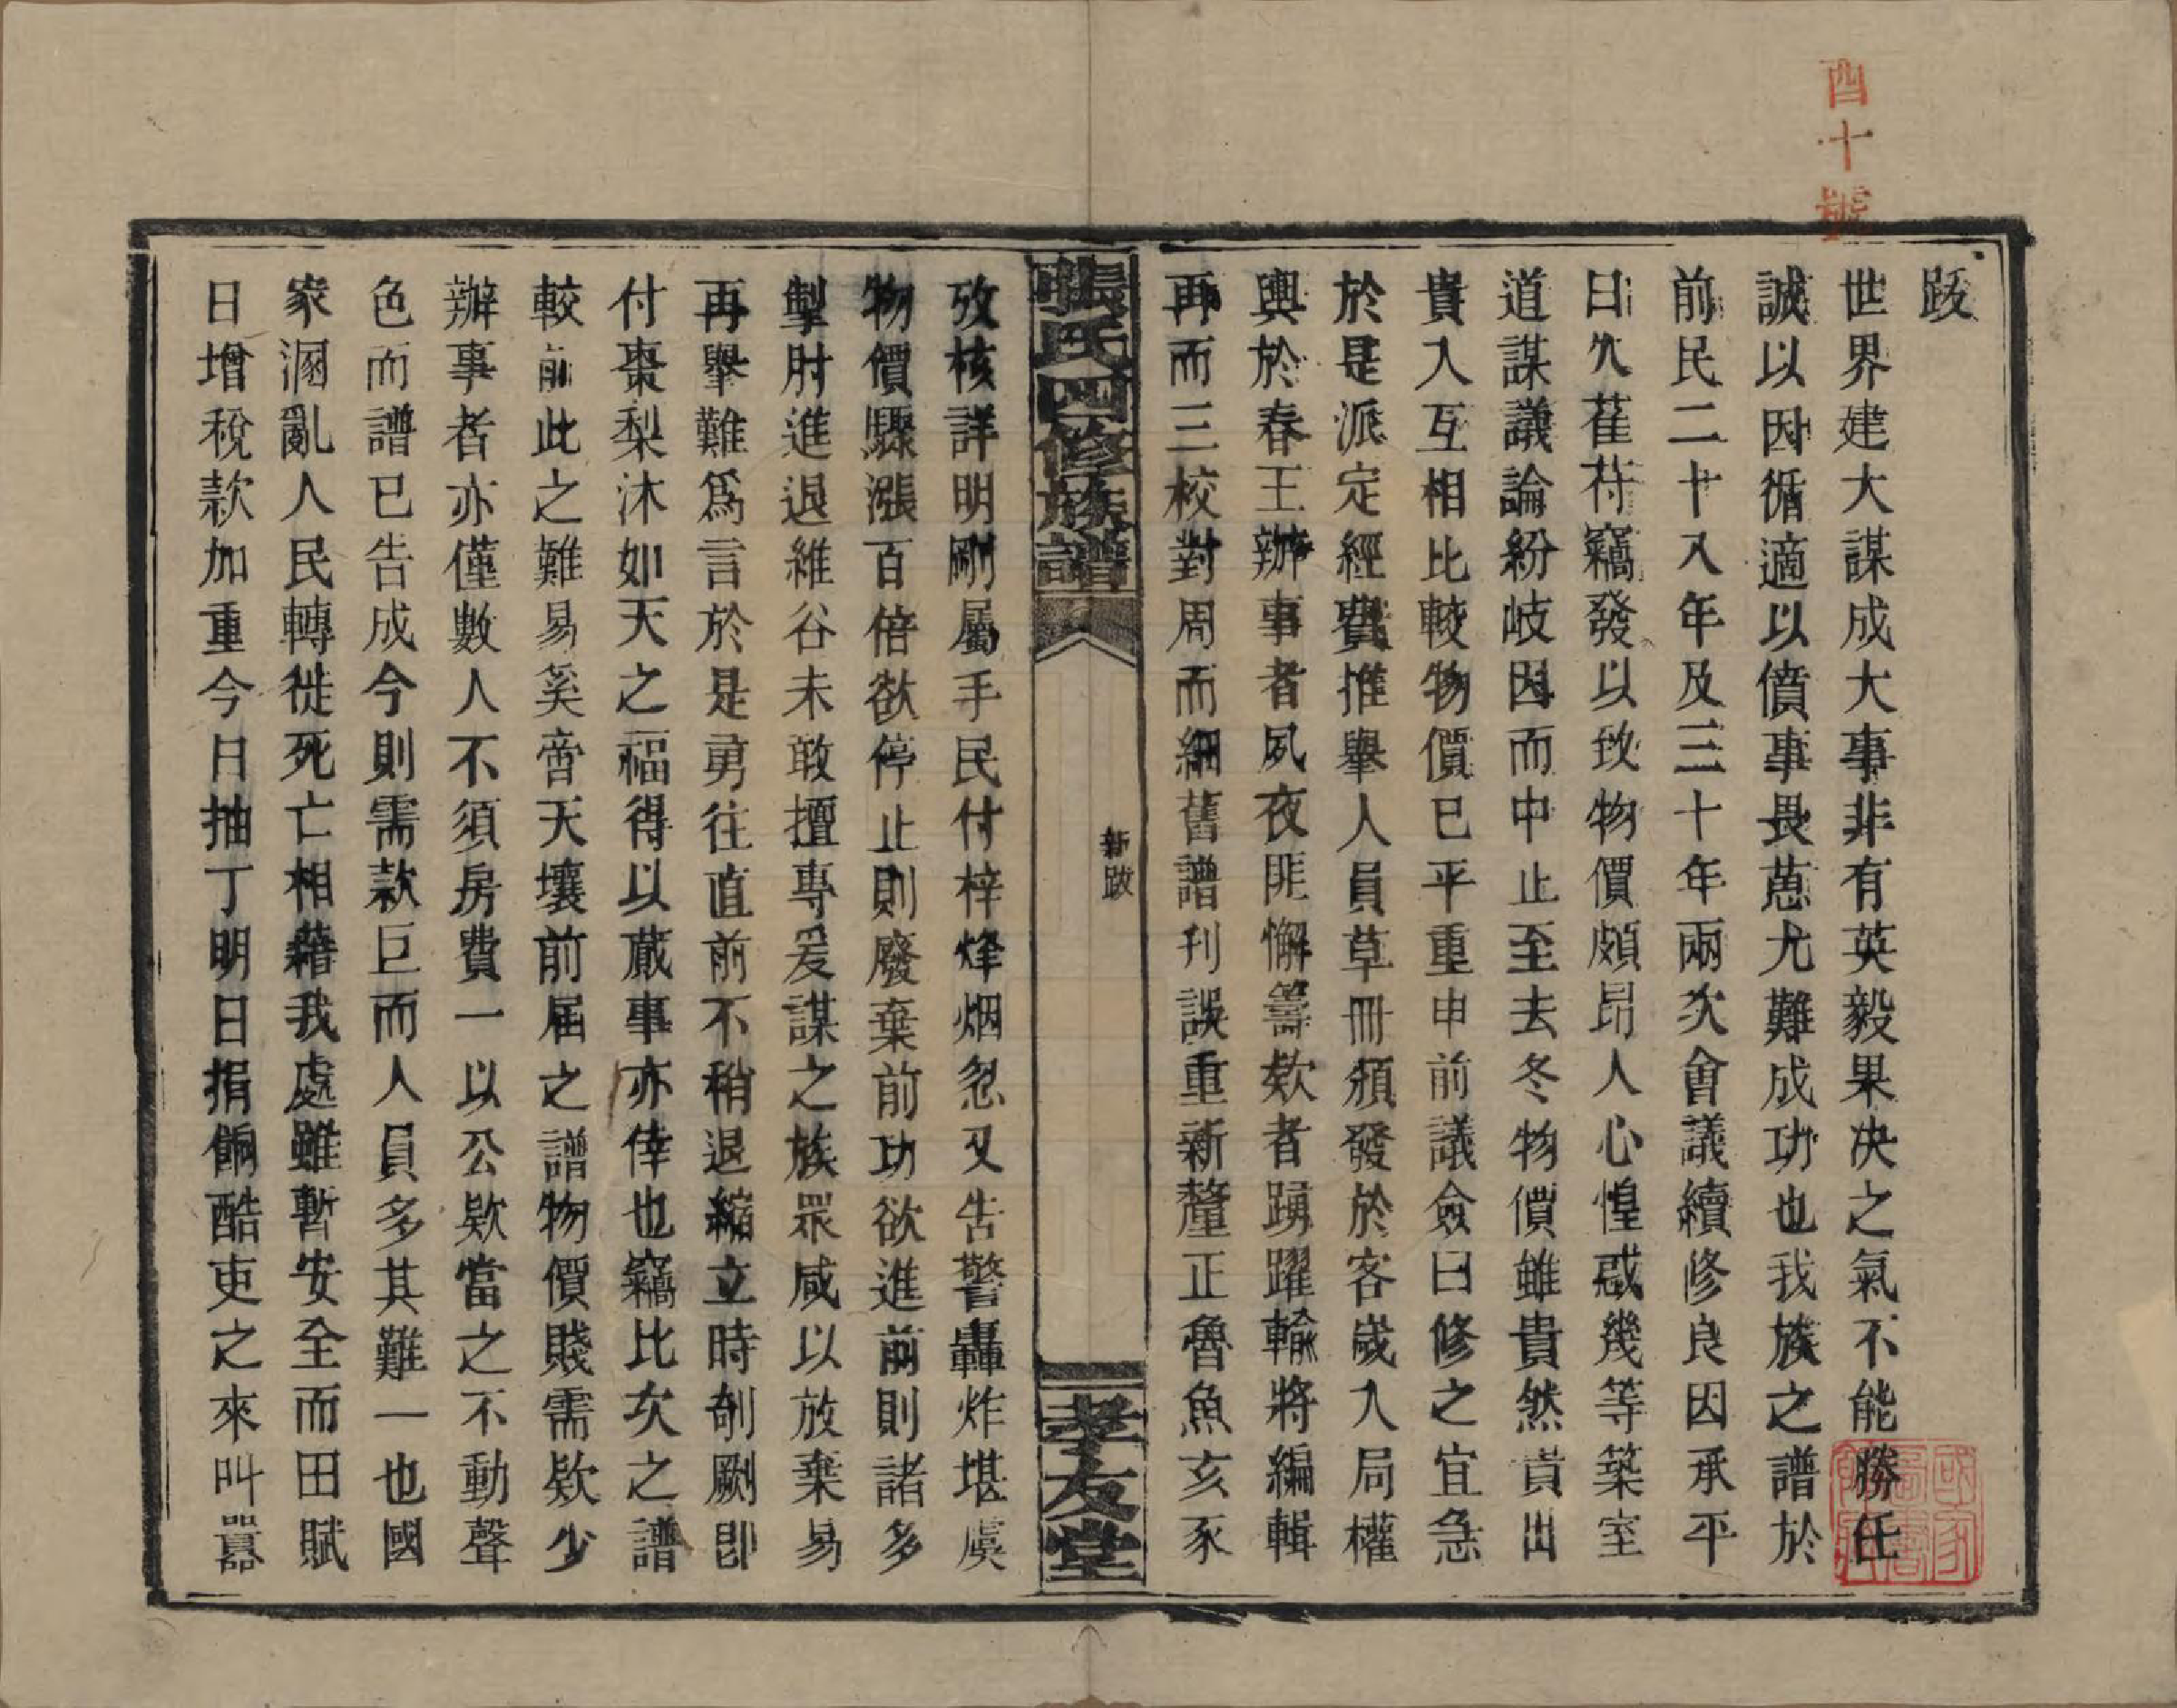 四十號
跋
世界建大謀成大事非有英毅果决之氣不能勝任
誠以因循適以僨事畏葸尤難成功也我族之譜於
前民二十八年及三十年兩次會議續修良因承平
日久萑苻竊發以致物價頗昂人心惶惑幾等築室
道謀議論紛岐因而中止至去冬物價雖貴然貴出
貴入互相比較物價已平重申前議僉曰修之宜急
於是派定經費推舉人員草冊頒發於客歲入局權
輿於春王辦事者夙夜匪懈籌欵者踴躍輸將編輯
再而三校對周而細舊譜刊誤重新釐正魯魚亥豕
張氏四修族譜
新跋
孝友堂
攷核詳明剛屬手民付梓烽烟忽又告警轟炸堪虞
物價驟漲百倍欲停止則廢棄前功欲進前則諸多
掣肘進退維谷未敢擅專爰謀之族眾咸以放棄易
再舉難爲言於是勇往直前不稍退縮立時剞劂卽
付棗梨沐如天之福得以蕆事亦倖也竊比次之譜
較前此之難易奚啻天壤前届之譜物價賤需欵少
辦事者亦僅數人不須房費一以公欵當之不動聲
色而譜已告成今則需款巨而人員多其難一也國
家溷亂人民轉徙死亡相藉我處雖暫安全而田賦
日增稅款加重今日抽丁明日捐餉酷吏之來叫囂